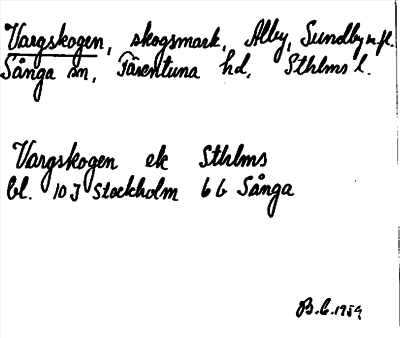 Vargskogen, skogsmark, Alby, Sundby m.fl.
Sånga sn, Färentuna hd, Sthlms l.
Vargskogen ek Sthlms
bl. 10 I Stockholm 6 b Sånga
B.C. 1959